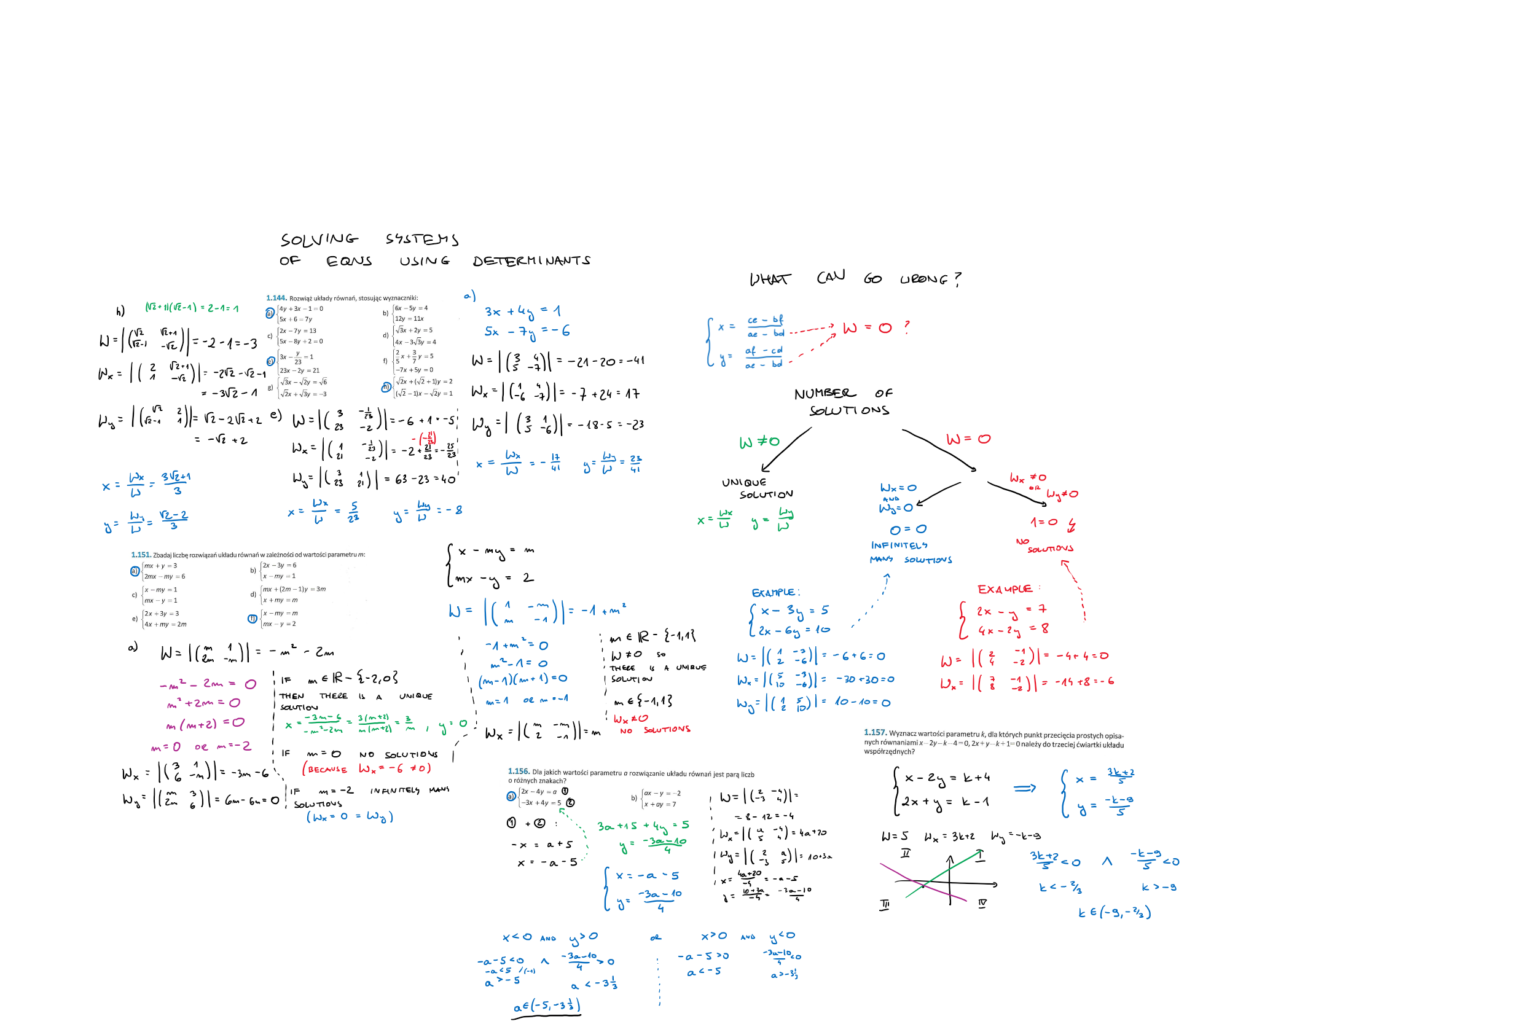 SOLVING SYSTEMS
OF EQNS USING DETERMINANTS
h)
(√2+1)(√2-1) = 2-1 = 1
W = |(√2 √2+1 / √2-1 -√2)| = -2-1 = -3
Wx = |(2 √2+1 / 1 -√2)| = -2√2-√2-1
= -3√2-1
Wy = |(√2 2 / √2-1 1)| = √2-2√2+2
= -√2+2
x = Wx/W = 3√2+1/3
y = Wy/W = √2-2/3
1.144. Rozwiąż układy równań, stosując wyznaczniki:
a) 4y + 3x - 1 = 0
5x + 6 = 7y
b) 6x - 5y = 4
12y = 11x
c) 2x - 7y = 13
5x - 8y + 2 = 0
d) √3x + 2y = 5
4x - 3√3y = 4
e) 3x - y/23 = 1
23x - 2y = 21
f) 2/5 x + 3/7 y = 5
-7x + 5y = 0
g) √3x - √2y = √6
√2x + √3y = -3
h) √2x + (√2 + 1)y = 2
(√2 - 1)x - √2y = 1
e)
W = |(3 -1/23 / 23 -2)| = -6+1 = -5
-(-21/23)
Wx = |(1 -1/23 / 21 -2)| = -2+21/23 = -25/23
Wy = |(3 1 / 23 21)| = 63-23 = 40
x = Wx/W = 5/23 y = Wy/W = -8
a)
3x + 4y = 1
5x - 7y = -6
W = |(3 4 / 5 -7)| = -21-20 = -41
Wx = |(1 4 / -6 -7)| = -7+24 = 17
Wy = |(3 1 / 5 -6)| = -18-5 = -23
x = Wx/W = -17/41 y = Wy/W = 23/41
WHAT CAN GO WRONG?
x = ce-bf/ae-bd
y = af-cd/ae-bd
W = 0 ?
NUMBER OF
SOLUTIONS
W ≠ 0
W = 0
UNIQUE
SOLUTION
x = Wx/W y = Wy/W
Wx = 0
AND
Wy = 0
0 = 0
INFINITELY
MANY SOLUTIONS
Wx ≠ 0
OR
Wy ≠ 0
1 = 0
NO
SOLUTIONS
EXAMPLE:
x - 3y = 5
2x - 6y = 10
W = |(1 -3 / 2 -6)| = -6+6 = 0
Wx = |(5 -3 / 10 -6)| = -30+30 = 0
Wy = |(1 5 / 2 10)| = 10-10 = 0
EXAMPLE:
2x - y = 7
4x - 2y = 8
W = |(2 -1 / 4 -2)| = -4+4 = 0
Wx = |(7 -1 / 8 -2)| = -14+8 = -6
1.151. Zbadaj liczbę rozwiązań układu równań w zależności od wartości parametru m:
a) mx + y = 3
2mx - my = 6
b) 2x - 3y = 6
x - my = 1
c) x - my = 1
mx - y = 1
d) mx + (2m - 1)y = 3m
x + my = m
e) 2x + 3y = 3
4x + my = 2m
f) x - my = m
mx - y = 2
a)
W = |(m 1 / 2m -m)| = -m² - 2m
-m² - 2m = 0
m² + 2m = 0
m(m+2) = 0
m = 0 OR m = -2
Wx = |(3 1 / 6 -m)| = -3m-6
Wy = |(m 3 / 2m 6)| = 6m-6m = 0
IF m ∈ R - {-2,0}
THEN THERE IS A UNIQUE
SOLUTION
x = -3m-6/-m²-2m = 3(m+2)/m(m+2) = 3/m, y = 0
IF m = 0 NO SOLUTIONS
(BECAUSE Wx = -6 ≠ 0)
IF m = -2 INFINITELY MANY
SOLUTIONS
(Wx = 0 = Wy)
x - my = m
mx - y = 2
W = |(1 -m / m -1)| = -1+m²
-1+m² = 0
m²-1 = 0
(m-1)(m+1) = 0
m = 1 OR m = -1
Wx = |(m -m / 2 -1)| = m
m ∈ R - {-1,1}
W ≠ 0 SO
THERE IS A UNIQUE
SOLUTION
m ∈ {-1,1}
Wx ≠ 0
NO SOLUTIONS
1.156. Dla jakich wartości parametru a rozwiązanie układu równań jest parą liczb
o różnych znakach?
a) 2x - 4y = a ①
-3x + 4y = 5 ②
b) ax - y = -2
x + ay = 7
① + ② :
-x = a+5
x = -a-5
3a+15+4y = 5
y = -3a-10/4
x = -a-5
y = -3a-10/4
W = |(2 -4 / -3 4)| =
= 8-12 = -4
Wx = |(a -4 / 5 4)| = 4a+20
Wy = |(2 a / -3 5)| = 10+3a
x = 4a+20/-4 = -a-5
y = 10+3a/-4 = -3a-10/4
x<0 AND y>0 OR x>0 AND y<0
-a-5<0 ∧ -3a-10/4 > 0
-a<5 /·(-1)
a>-5 a < -3 1/3
a ∈ (-5, -3 1/3)
-a-5>0 -3a-10/4 <0
a<-5 a>-3 1/3
1.157. Wyznacz wartości parametru k, dla których punkt przecięcia prostych opisa-
nych równaniami x - 2y - k - 4 = 0, 2x + y - k + 1 = 0 należy do trzeciej ćwiartki układu
współrzędnych?
x - 2y = k+4
2x + y = k-1
⟹
x = 3k+2/5
y = -k-9/5
W = 5 Wx = 3k+2 Wy = -k-9
II I
III IV
3k+2/5 < 0 ∧ -k-9/5 < 0
k < -2/3 k > -9
k ∈ (-9, -2/3)